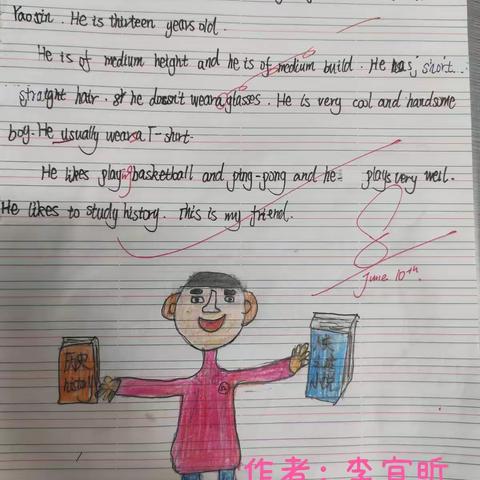 Yaoxin. He is thirteen years old.
He is of medium height and he is of medium build. He has short
straight hair. he doesn't wear glasses. He is very cool and handsome
boy. He usually wears T-shirt.
He likes playing basketball and ping-pong and he plays very well.
He likes to study history. This is my friend.
8
June 10th.
历史
history
小说
作者：李宜昕